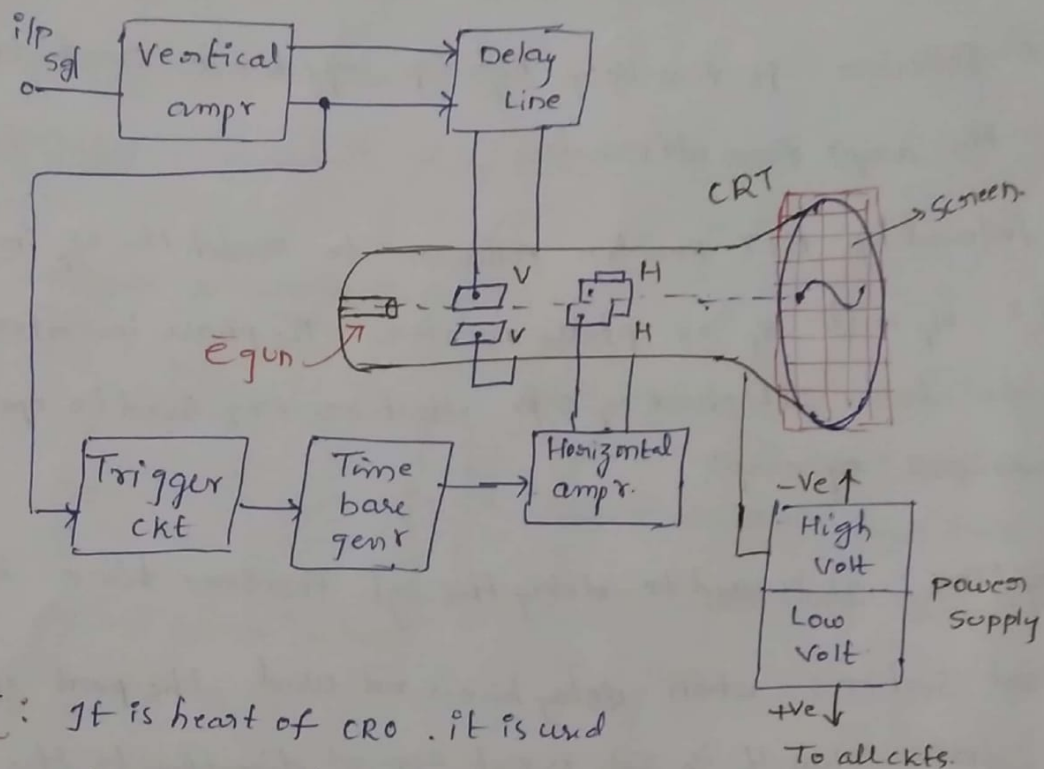 i/p
sgl
Vertical
ampr
Delay
Line
CRT
Screen.
V
H
V
H
ē gun
Trigger
ckt
Time
base
genr
Horizontal
ampr.
-Ve
High
Volt
Low
Volt
power
Supply
+ve
: It is heart of CRO . it is used
To all ckts.